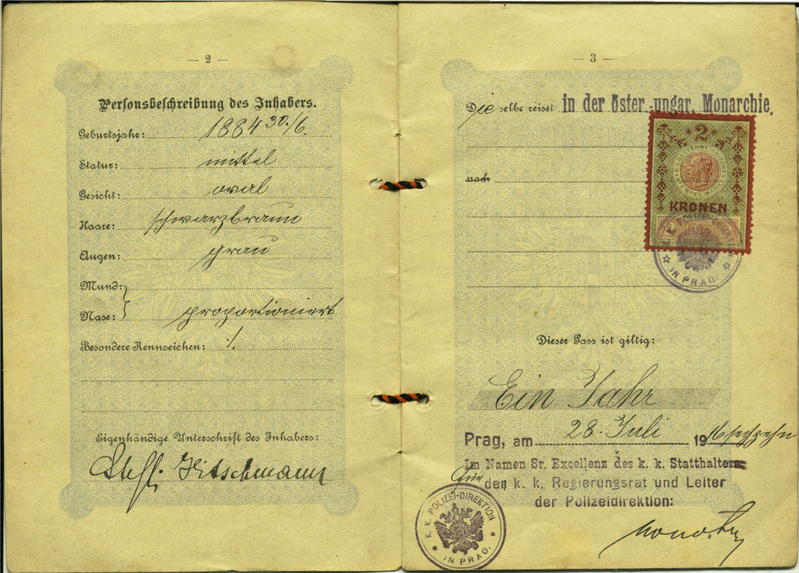 — 2 —
Personsbeschreibung des Inhabers.
Geburtsjahr: 1884 30./6.
Statur: mittel
Gesicht: oval
Haare: schwarzbraun
Augen: grau
Mund:
Nase: proportioniert
Besondere Kennzeichen: ./.
Eigenhändige Unterschrift des Inhabers:
Hitschmann
— 3 —
Dieselbe reiset in der öster.-ungar. Monarchie.
nach
2
KRONEN
IN PRAG.
Dieser Pass ist giltig:
Ein Jahr
Prag, am 28. Juli 1916 sechzehn
Im Namen Sr. Excellenz des k. k. Statthalters
Für den k. k. Regierungsrat und Leiter
der Polizeidirektion:
K. K. POLIZEI-DIREKTION
IN PRAG.